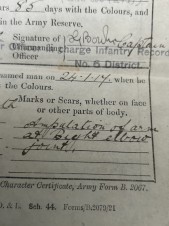 85 days with the Colours, and
in the Army Reserve.
Signature of
Captain
Officer
charge Infantry Record
No. 6 District.
named man on 24-1-17, when he
the Colours.
Marks or Scars, whether on face
or other parts of body.
Amputation of arm
at right elbow
joint.
Character Certificate, Army Form B. 2067.
D. & L. Sch. 44. Forms/B.2079/21